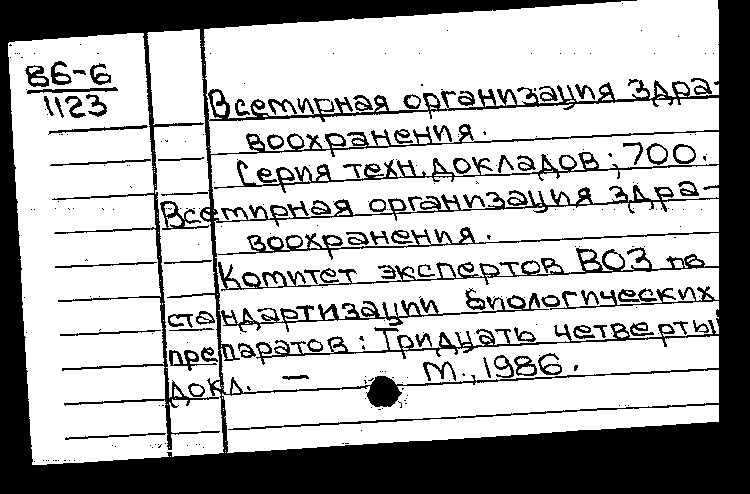 86-6
1123
Всемирная организация здра-
воохранения.
Серия техн. докладов; 700.
Всемирная организация здра-
воохранения.
Комитет экспертов ВОЗ по
стандартизации биологических
препаратов: Тридцать четверты
докл. — М., 1986.